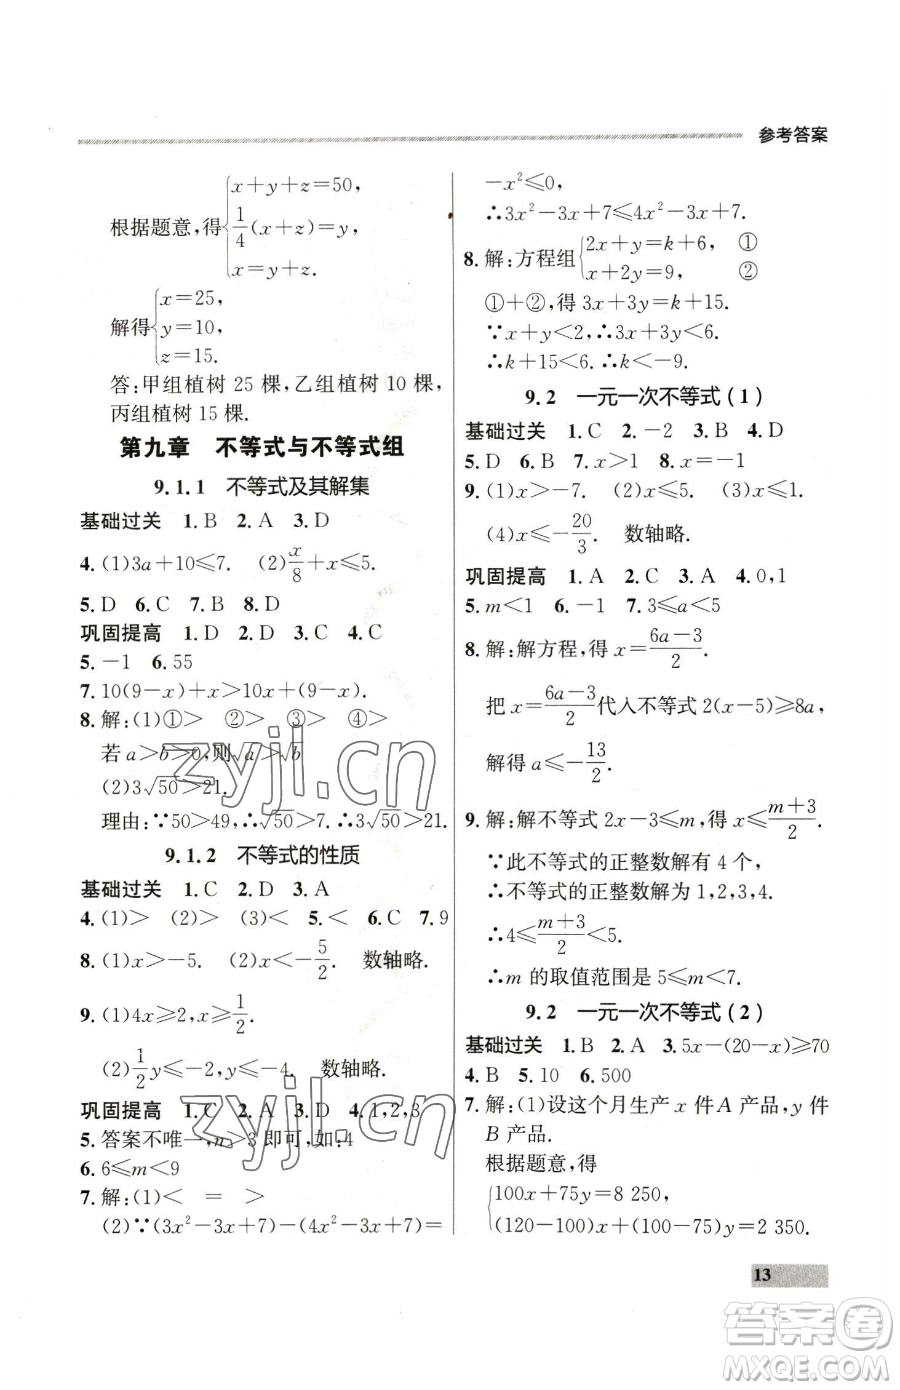 参考答案
根据题意,得{x+y+z=50,
1/4(x+z)=y,
x=y+z.
解得{x=25,
y=10,
z=15.
答:甲组植树 25 棵,乙组植树 10 棵,
丙组植树 15 棵.
第九章 不等式与不等式组
9.1.1 不等式及其解集
基础过关 1.B 2.A 3.D
4.(1)3a+10≤7. (2)x/8+x≤5.
5.D 6.C 7.B 8.D
巩固提高 1.D 2.D 3.C 4.D
5.-1 6.55
7.10(9-x)+x>10x+(9-x).
8.解:(1)①> ②> ③> ④>
若 a>b>0,则√a>√b
(2)3√50>21.
理由:∵50>49,∴√50>7.∴3√50>21.
9.1.2 不等式的性质
基础过关 1.C 2.D 3.A
4.(1)> (2)> (3)< 5.< 6.C 7.9
8.(1)x>-5. (2)x<-5/2. 数轴略.
9.(1)4x≥2,x≥1/2.
(2)1/2y≤-2,y≤-4. 数轴略.
巩固提高 1.C 2.A 3.D 4.1,2,3
5.答案不唯一,n>3即可,如:4
6.6≤m<9
7.解:(1)< = >
(2)∵(3x²-3x+7)-(4x²-3x+7)=
-x²≤0,
∴3x²-3x+7≤4x²-3x+7.
8.解:方程组{2x+y=k+6, ①
x+2y=9, ②
①+②,得 3x+3y=k+15.
∵x+y<2,∴3x+3y<6.
∴k+15<6.∴k<-9.
9.2 一元一次不等式(1)
基础过关 1.C 2.-2 3.B 4.D
5.D 6.B 7.x>1 8.x=-1
9.(1)x>-7. (2)x≤5. (3)x≤1.
(4)x≤-20/3. 数轴略.
巩固提高 1.A 2.C 3.A 4.0,1
5.m<1 6.-1 7.3≤a<5
8.解:解方程,得 x=(6a-3)/2.
把 x=(6a-3)/2代入不等式 2(x-5)≥8a,
解得 a≤-13/2.
9.解:解不等式 2x-3≤m,得 x≤(m+3)/2.
∵此不等式的正整数解有 4 个,
∴不等式的正整数解为 1,2,3,4.
∴4≤(m+3)/2<5.
∴m 的取值范围是 5≤m<7.
9.2 一元一次不等式(2)
基础过关 1.B 2.A 3.5x-(20-x)≥70
4.B 5.10 6.500
7.解:(1)设这个月生产 x 件A 产品,y 件
B 产品.
根据题意,得
{100x+75y=8 250,
(120-100)x+(100-75)y=2 350.
13
zyjl.cn
zyjl.cn
答案圈
MXQE.COM